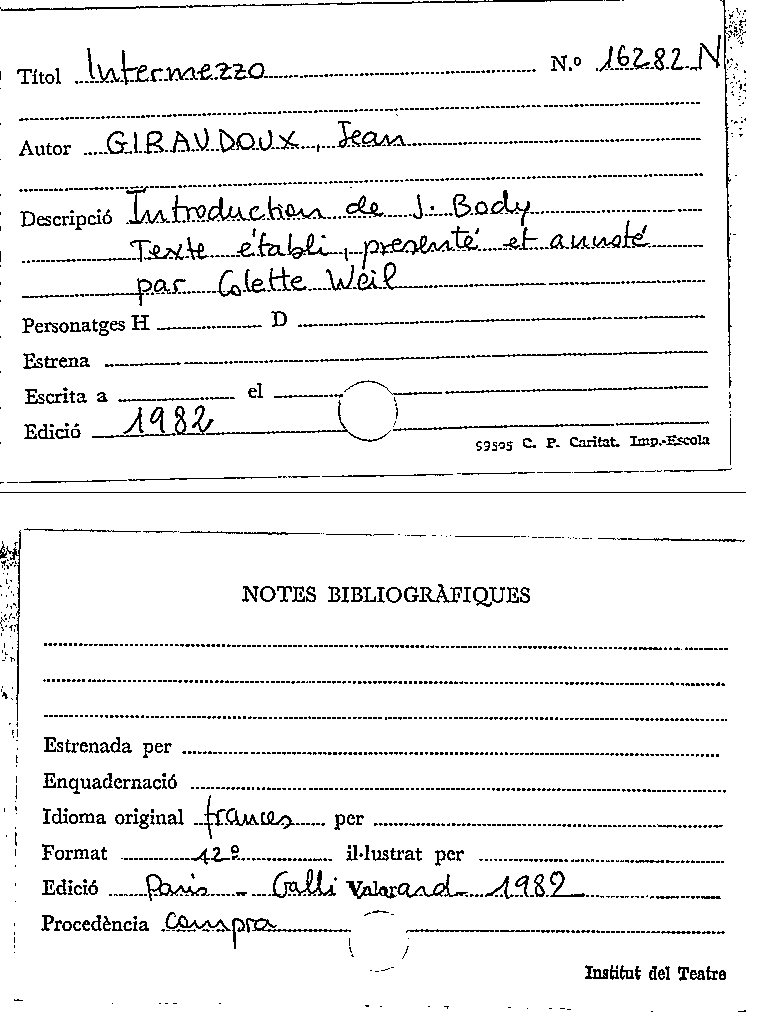 Títol Intermezzo N.º 16282 N
Autor GIRAUDOUX, Jean
Descripció Introduction de J. Body
Texte établi, presenté et annoté
par Colette Weil
Personatges H D
Estrena
Escrita a el
Edició 1982
59505 C. P. Caritat. Imp.-Escola
NOTES BIBLIOGRÀFIQUES
Estrenada per
Enquadernació
Idioma original frances per
Format 12º il·lustrat per
Edició Paris - Galli 1982
Procedència compra
Institut del Teatre